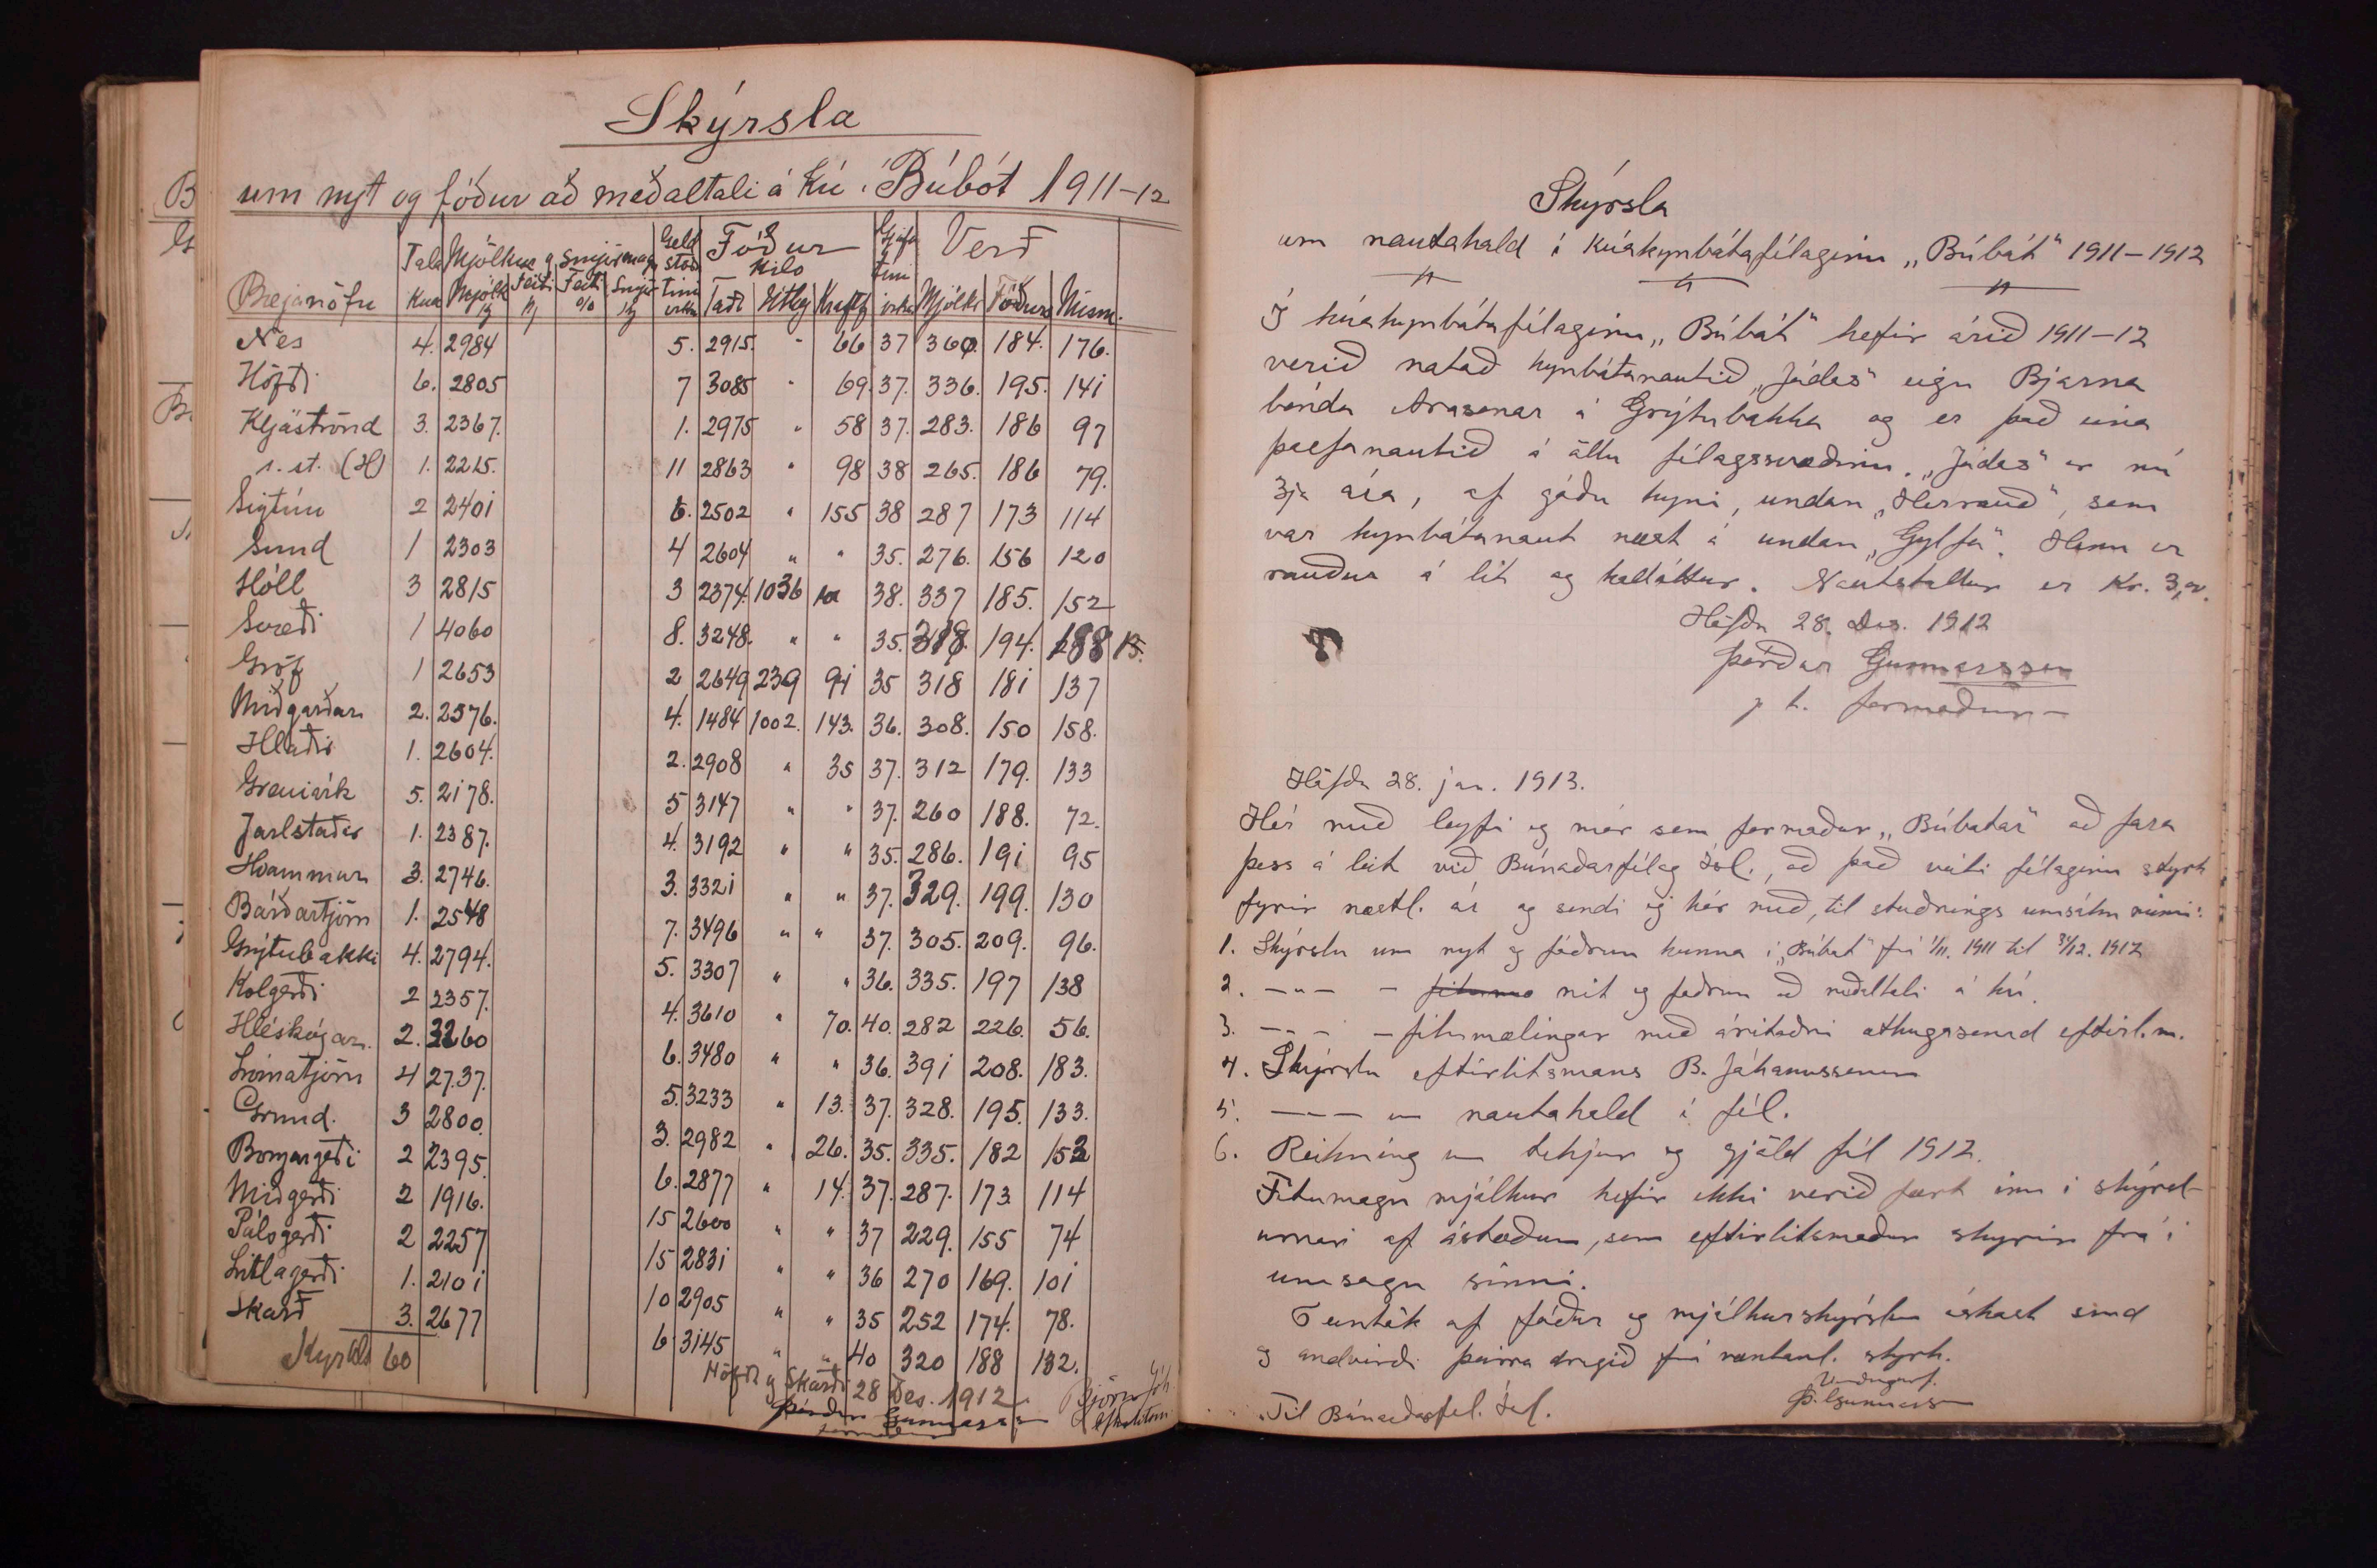 Skýrsla
um nyt og fóður að meðaltali á kú í Búbót 1911-12
Bæjanöfn Tala Kúa Mjólkur og smjörmagn Mjólk kg Feiti kg Feiti % Smjör kg Geld stöðu tími vikur Fóður Kilo Taða Úthey Kraftf Gjafa tími vikur Verð Mjólkr Fóðurs Mism.
Nes 4. 2984 5. 2915. " 66 37 360. 184. 176.
Höfði 6. 2805 7 3085 " 69. 37. 336. 195. 141
Kljáströnd 3. 2367. 1. 2975 " 58 37. 283. 186 97
s. st. (H) 1. 2215. 11 2863 " 98 38 265. 186 79.
Sigtún 2 2401 6. 2502 " 155 38 287 173 114
Sund 1 2303 4 2604 " " 35. 276. 156 120
Hóll 3 2815 3 2374. 1036 38. 337 185. 152
Svæði 1 4060 8. 3248. " " 35. 194.
Gröf 1 2653 2 2649 239 91 35 318 181 137
Miðgarðar 2. 2576. 4. 1484 1002. 143. 36. 308. 150 158.
Hlaðir 1. 2604. 2. 2908 " 35 37. 312 179. 133
Grenivík 5. 2178. 5 3147 " " 37. 260 188. 72.
Jarlstaðir 1. 2387. 4. 3192 " " 35. 286. 191 95
Hvammur 3. 2746. 3. 3321 " " 37. 329. 199. 130
Bárðartjörn 1. 2548 7. 3496 " " 37. 305. 209. 96.
Grýtubakki 4. 2794. 5. 3307 " " 36. 335. 197 138
Kolgerði 2 2357. 4. 3610 " 70. 40. 282 226. 56.
Hléskógar. 2. 3260 6. 3480 " " 36. 391 208. 183.
Lómatjörn 4 2737. 5. 3233 " 13. 37. 328. 195. 133.
Grund. 3 2800. 3. 2982 " 26. 35. 335. 182 153
Borgargerði 2 2395. 6. 2877 " 14. 37. 287. 173 114
Miðgerði 2 1916. 15 2600 " " 37 229. 155 74
Pálsgerði 2 2257 15 2831 " " 36 270 169. 101
Litlagerði 1. 2101 10 2905 " " 35 252 174. 78.
Skarð 3. 2677 6. 3145 " " 40 320 188 132.
Kýr alls 60
Höfði og Skarði 28 Des. 1912
Þórður Gunnarsson Björn Jóh
formaður
Skýrsla
um nautahald í kúakynbótafélaginu „Búbót" 1911-1912
Í kúakynbótafélaginu „Búbót" hefir árið 1911-12
verið notað kynbótanautið „Júdas" eign Bjarna
bónda Arasonar á Grýtubakka og er það eina
þarfanautið á öllu félagssvæðinu. „Júdas" er nú
3ja ára, af góðu kyni, undan „Herrauð", sem
var kynbótanaut næst á undan „Gylfa". Hann er
rauður á lit og kollóttur. Nautstollur er Kr. 3,00.
Höfða 28. Des. 1912
Þórður Gunnarsson
p. t. formaður
Höfða 28. jan. 1913.
Hér með leyfi eg mér sem formaður „Búbótar" að fara
þess á leit við Búnaðarfélag Ísl., að það veiti félaginu styrk
fyrir næstl. ár og sendi eg hér með, til stuðnings umsókn minni:
1. Skýrslu um nyt og fóðrun kúnna í „Búbót" frá 1/11. 1911 til 31/12. 1912
2. -"- - nit og fóðrun að meðaltali á kú.
3. -"- - fitumælingar með áritaðri athugasemd eftirl.m.
4. Skýrslu eftirlitsmans B. Jóhannssonar
5. -"- um nautahald í fél.
6. Reikning um tekjur og gjöld fél 1912.
Fitumagn mjólkur hefir ekki verið fært inn í skýrsl-
urnar af ástæðum, sem eftirlitsmaður skýrir frá í
umsögn sinni.
7 eintök af fóður og mjólkurskýrslu óskast send
og andvirði þeirra dregið frá væntanl. styrk.
Virðingarf.
Þ. Gunnarss
Til Búnaðarfel. Ísl.